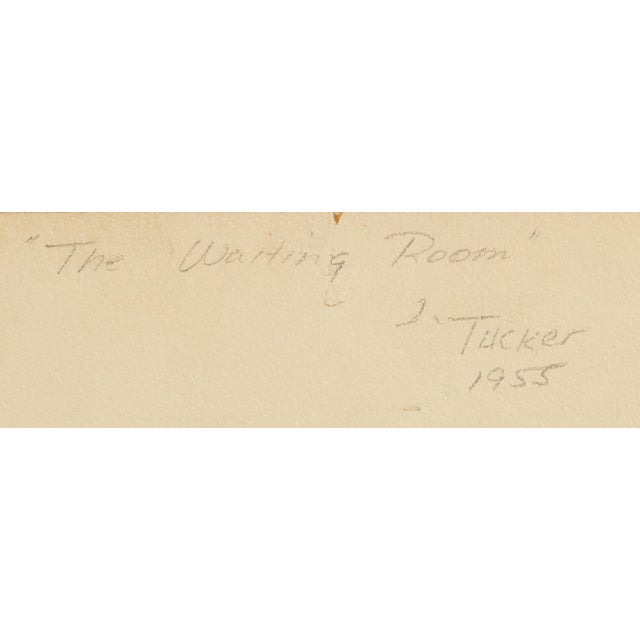 "The Waiting Room"
J. Tucker
1955